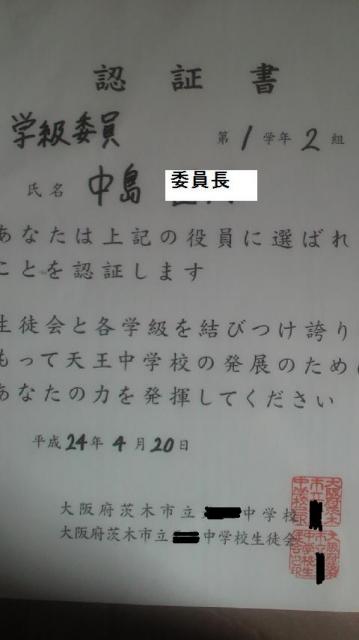 認証書
学級委員
第1学年2組
氏名 中島 委員長
あなたは上記の役員に選ばれ
ことを認証します
生徒会と各学級を結びつけ誇り
もって天王中学校の発展のため
あなたの力を発揮してください
平成24年4月20日
大阪府茨木市立 中学校
大阪府茨木市立 中学校生徒会